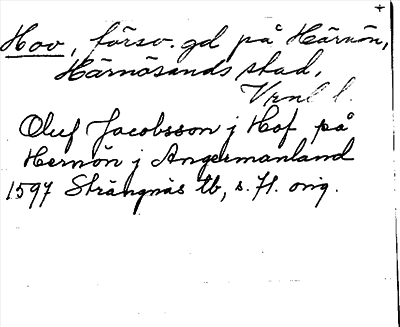 +
Hov, försv. gd på Härnön,
Härnösands stad,
Vrnl l.
Oluf Jacobsson j Hof på
Hernön j Angermanland
1597 Strängnäs tb, s. 71. orig.